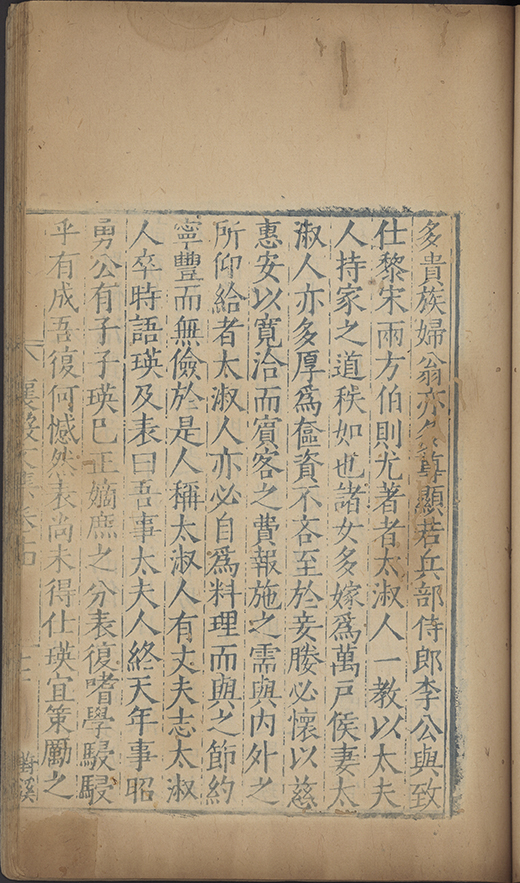 多貴族婦翁亦尊顯若兵部侍郎李公與致
仕黎宋兩方伯則尤著者太淑人一教以太夫
人持家之道秩如也諸女多嫁爲萬戶侯妻太
淑人亦多厚爲奩資不吝至於妾媵必懷以慈
惠安以寬洽而賓客之費報施之需與內外之
所仰給者太淑人亦必自爲料理而與之節約
寧豐而無儉於是人稱太淑人有丈夫志太淑
人卒時語瑛及表曰吾事太夫人終天年事昭
勇公有子子瑛已正嫡庶之分表復嗜學駸駸
乎有成吾復何憾然表尚未得仕瑛宜策勵之
襄毅文集卷